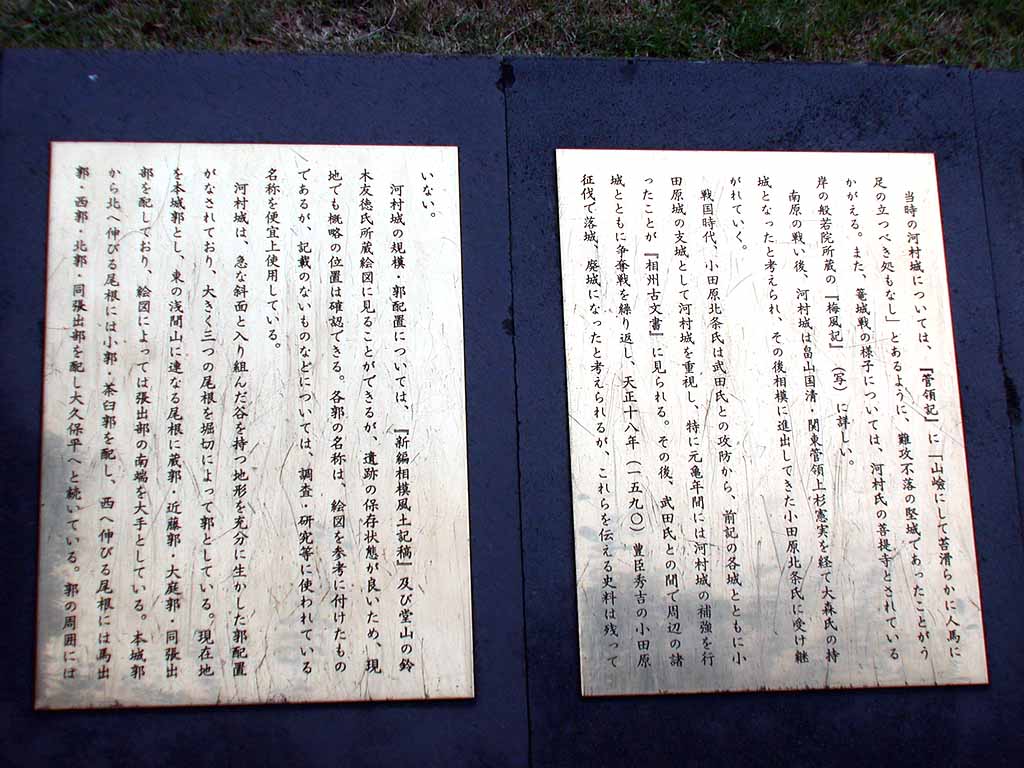 当時の河村城については、『管領記』に「山嶮にして苔滑らかに人馬に
足の立つべき処もなし」とあるように、難攻不落の堅城であったことがう
かがえる。また、篭城戦の様子については、河村氏の菩提寺とされている
岸の般若院所蔵の『梅風記』（写）に詳しい。
南原の戦い後、河村城は畠山国清・関東管領上杉憲実を経て大森氏の持
城となったと考えられ、その後相模に進出してきた小田原北条氏に受け継
がれていく。
戦国時代、小田原北条氏は武田氏との攻防から、前記の各城とともに小
田原城の支城として河村城を重視し、特に元亀年間には河村城の補強を行
ったことが『相州古文書』に見られる。その後、武田氏との間で周辺の諸
城とともに争奪戦を繰り返し、天正十八年（一五九〇）豊臣秀吉の小田原
征伐で落城、廃城になったと考えられるが、これらを伝える史料は残って
いない。
河村城の規模・郭配置については、『新編相模風土記稿』及び堂山の鈴
木友徳氏所蔵絵図に見ることができるが、遺跡の保存状態が良いため、現
地でも概略の位置は確認できる。各郭の名称は、絵図を参考に付けたもの
であるが、記載のないものなどについては、調査・研究等に使われている
名称を便宜上使用している。
河村城は、急な斜面と入り組んだ谷を持つ地形を充分に生かした郭配置
がなされており、大きく三つの尾根を堀切によって郭としている。現在地
を本城郭とし、東の浅間山に連なる尾根に蔵郭・近藤郭・大庭郭・同張出
部を配しており、絵図によっては張出部の南端を大手としている。本城郭
から北へ伸びる尾根には小郭・茶臼郭を配し、西へ伸びる尾根には馬出
郭・西郭・北郭・同張出部を配し大久保平へと続いている。郭の周囲には